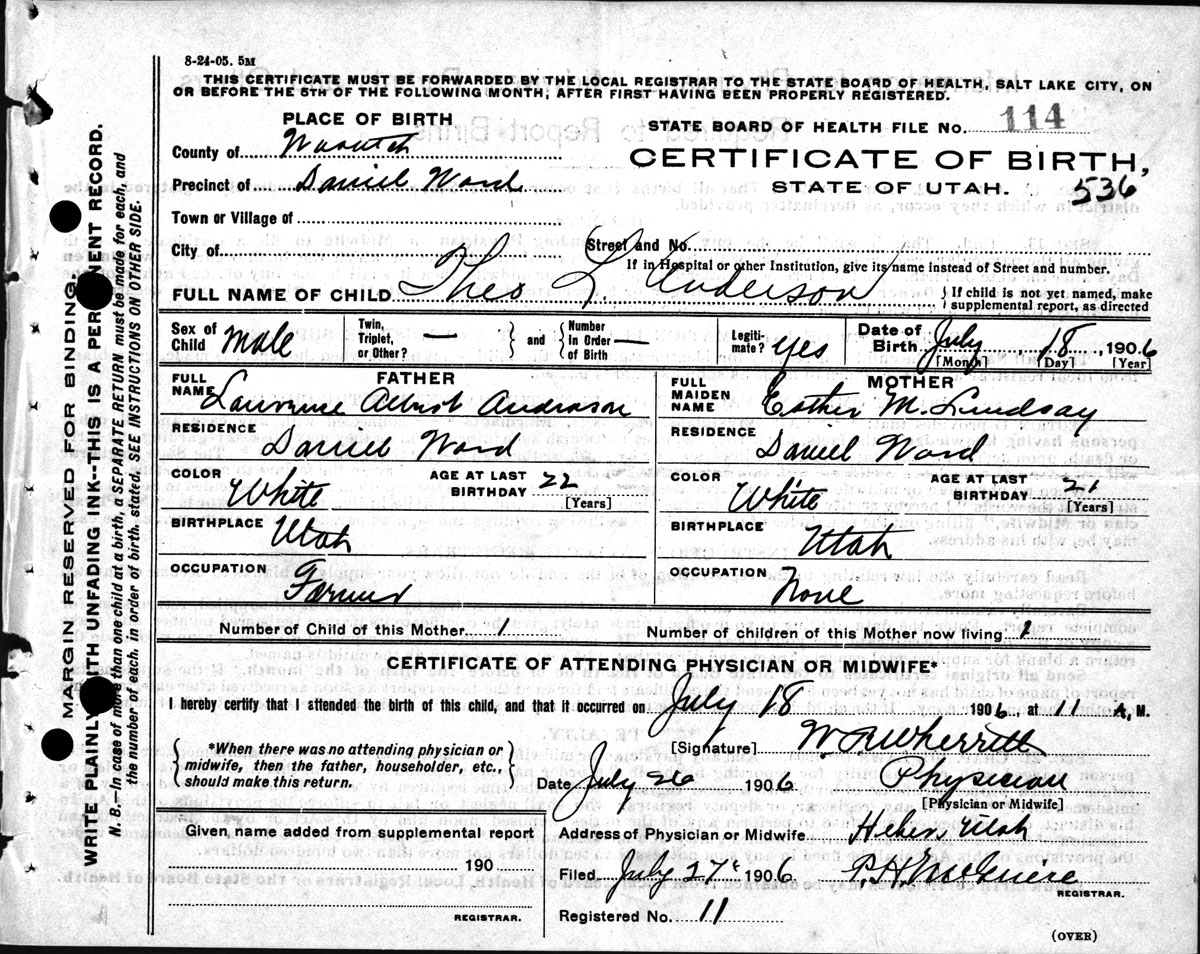 8-24-05. 5M
THIS CERTIFICATE MUST BE FORWARDED BY THE LOCAL REGISTRAR TO THE STATE BOARD OF HEALTH, SALT LAKE CITY, ON
OR BEFORE THE 5TH OF THE FOLLOWING MONTH, AFTER FIRST HAVING BEEN PROPERLY REGISTERED.
PLACE OF BIRTH
STATE BOARD OF HEALTH FILE No. 114
County of Wasatch
CERTIFICATE OF BIRTH,
Precinct of Daniel Ward
STATE OF UTAH. 536
Town or Village of
City of Street and No.
If in Hospital or other Institution, give its name instead of Street and number.
FULL NAME OF CHILD Theo L. Anderson { If child is not yet named, make
supplemental report, as directed
Sex of Child Male
Twin, Triplet, or Other? — } and { Number In Order of Birth —
Legiti-mate? yes
Date of Birth July 18, 1906
[Month] [Day] [Year]
FATHER
FULL NAME Lawrence Albert Anderson
RESIDENCE Daniel Ward
COLOR White AGE AT LAST BIRTHDAY 22
[Years]
BIRTHPLACE Utah
OCCUPATION Farmer
MOTHER
FULL MAIDEN NAME Esther M. Lindsay
RESIDENCE Daniel Ward
COLOR White AGE AT LAST BIRTHDAY 21
[Years]
BIRTHPLACE Utah
OCCUPATION None
Number of Child of this Mother 1 Number of children of this Mother now living 1
CERTIFICATE OF ATTENDING PHYSICIAN OR MIDWIFE*
I hereby certify that I attended the birth of this child, and that it occurred on July 18 1906, at 11 A. M.
*When there was no attending physician or
midwife, then the father, householder, etc.,
should make this return.
[Signature] W R Wherritt
Date July 26 1906 Physician
[Physician or Midwife]
Given name added from supplemental report
190
REGISTRAR.
Address of Physician or Midwife Heber, Utah
Filed July 27 1906
REGISTRAR.
Registered No. 11
(OVER)
MARGIN RESERVED FOR BINDING.
WRITE PLAINLY WITH UNFADING INK--THIS IS A PERMANENT RECORD.
N. B.—In case of more than one child at a birth, a SEPARATE RETURN must be made for each, and
the number of each, in order of birth, stated. SEE INSTRUCTIONS ON OTHER SIDE.